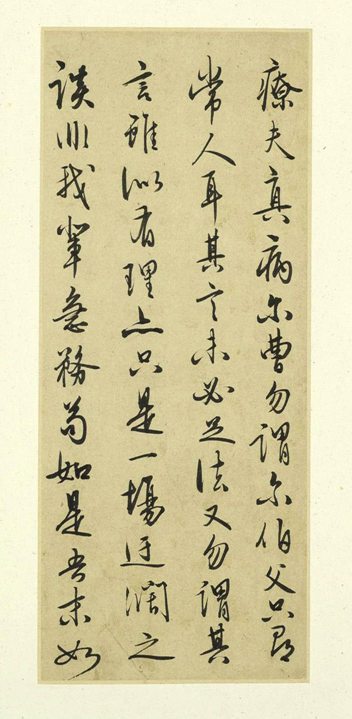 療夫真病尔曹勿謂尔伯父只尋
常人耳其言未必足法又勿謂其
言雖似有理亦只是一場迂濶之
談非我輩急務苟如是吾末如